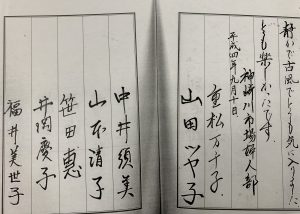 静かで古風でとても気に入りました
とても楽しかったです
平成四年九月十日
神崎川市場婦人部
重松万千子
山田ツヤ子
中井須美
山本清子
笹田恵
井内慶子
福井美世子